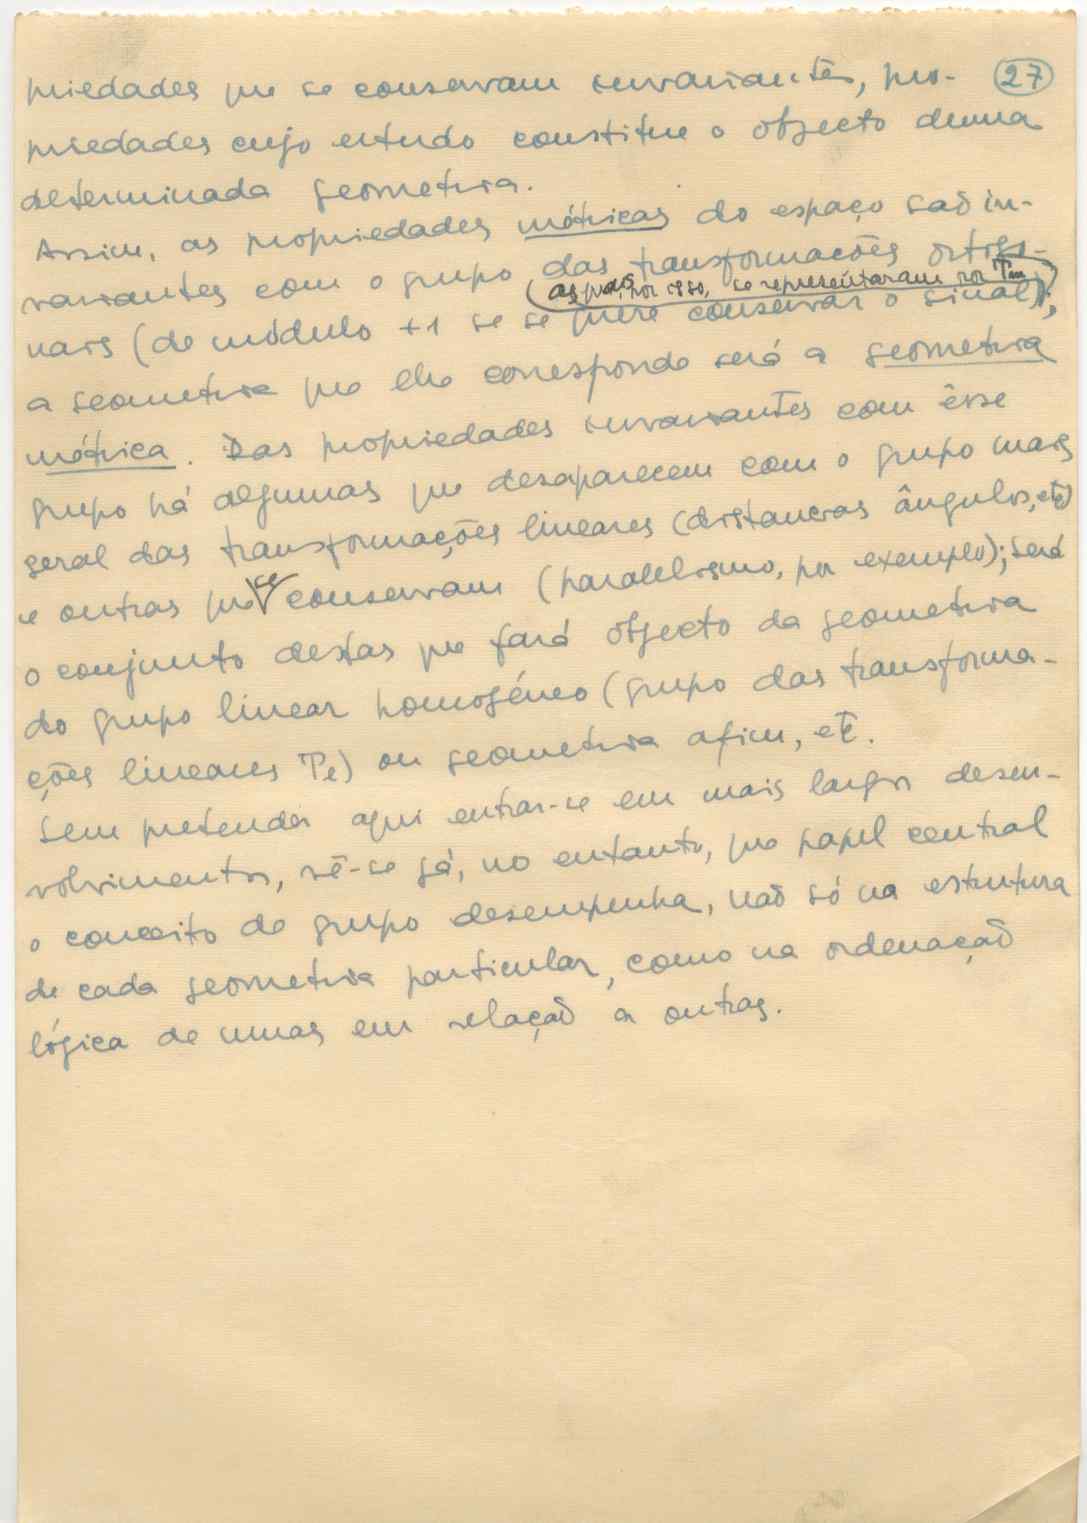 27
priedades que se conservam invariantes, pro-
priedades cujo estudo constitue o objecto duma
determinada geometria.
Assim, as propriedades métricas do espaço saõ in-
variantes com o grupo das transformações ortogo-
(as quais, por isso, se representaram por Tm)
nais (de módulo +1 se se quere conservar o sinal);
a geometria que lhe corresponde será a geometria
métrica. Das propriedades invariantes com êsse
grupo há algumas que desaparecem com o grupo mais
geral das transformações lineares (distancias ângulos, etc)
e outras que se conservam (paralelismo, por exemplo); será
o conjunto destas que fará objecto da geometria
do grupo linear homogéneo (grupo das transforma-
ções lineares Tl) ou geometria afim, etc.
Sem pretender aqui entrar-se em mais largos desen-
volvimentos, vê-se já, no entanto, que papel central
o conceito de grupo desempenha, naõ só na estrutura
de cada geometria particular, como na ordenaçaõ
lógica de umas em relaçaõ a outras.